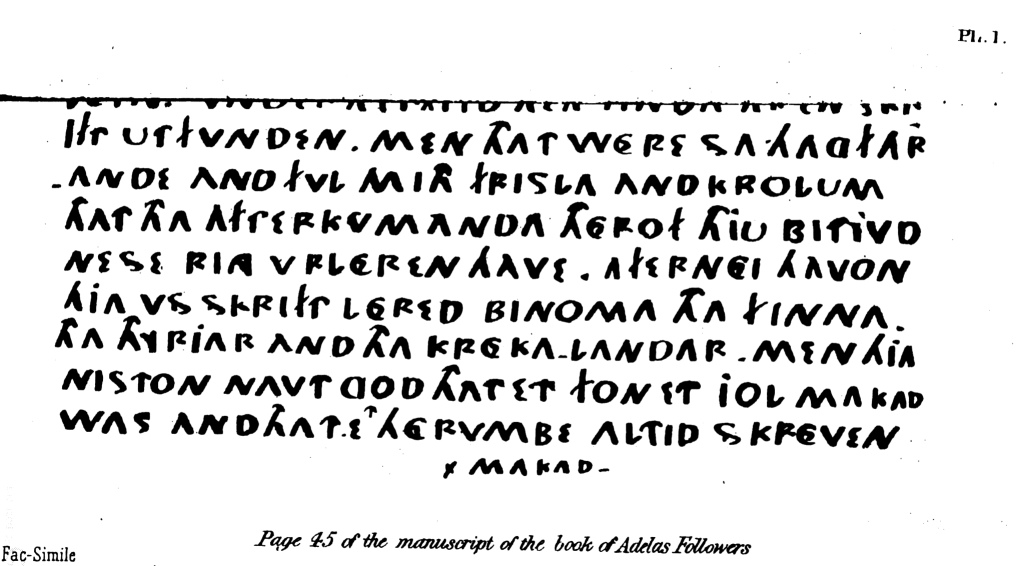 Pl. 1.
IFT UTFVNDEN. MEN THAT WERE SA HAGFAR
-ANDE AND FVL MITH FRISLA AND KROLUM
THAT THA AFTERKVMANDA THEROF THJU BITJVD
NESE RING VRLEREN HAVE. AFTERNEI HAVON
HJA VS SKRIFT LERED BINOMA THA FINNA.
THA THYRJAR AND THA KREKA-LANDAR. MEN HJA
NISTON NAVT GOD THAT ET FON ET JOL MAKAD
WAS AND THAT ET HERVMBE ALTID SKREVEN
× MAKAD-
Page 45 of the manuscript of the book of Adelas Followers
Fac-Simile